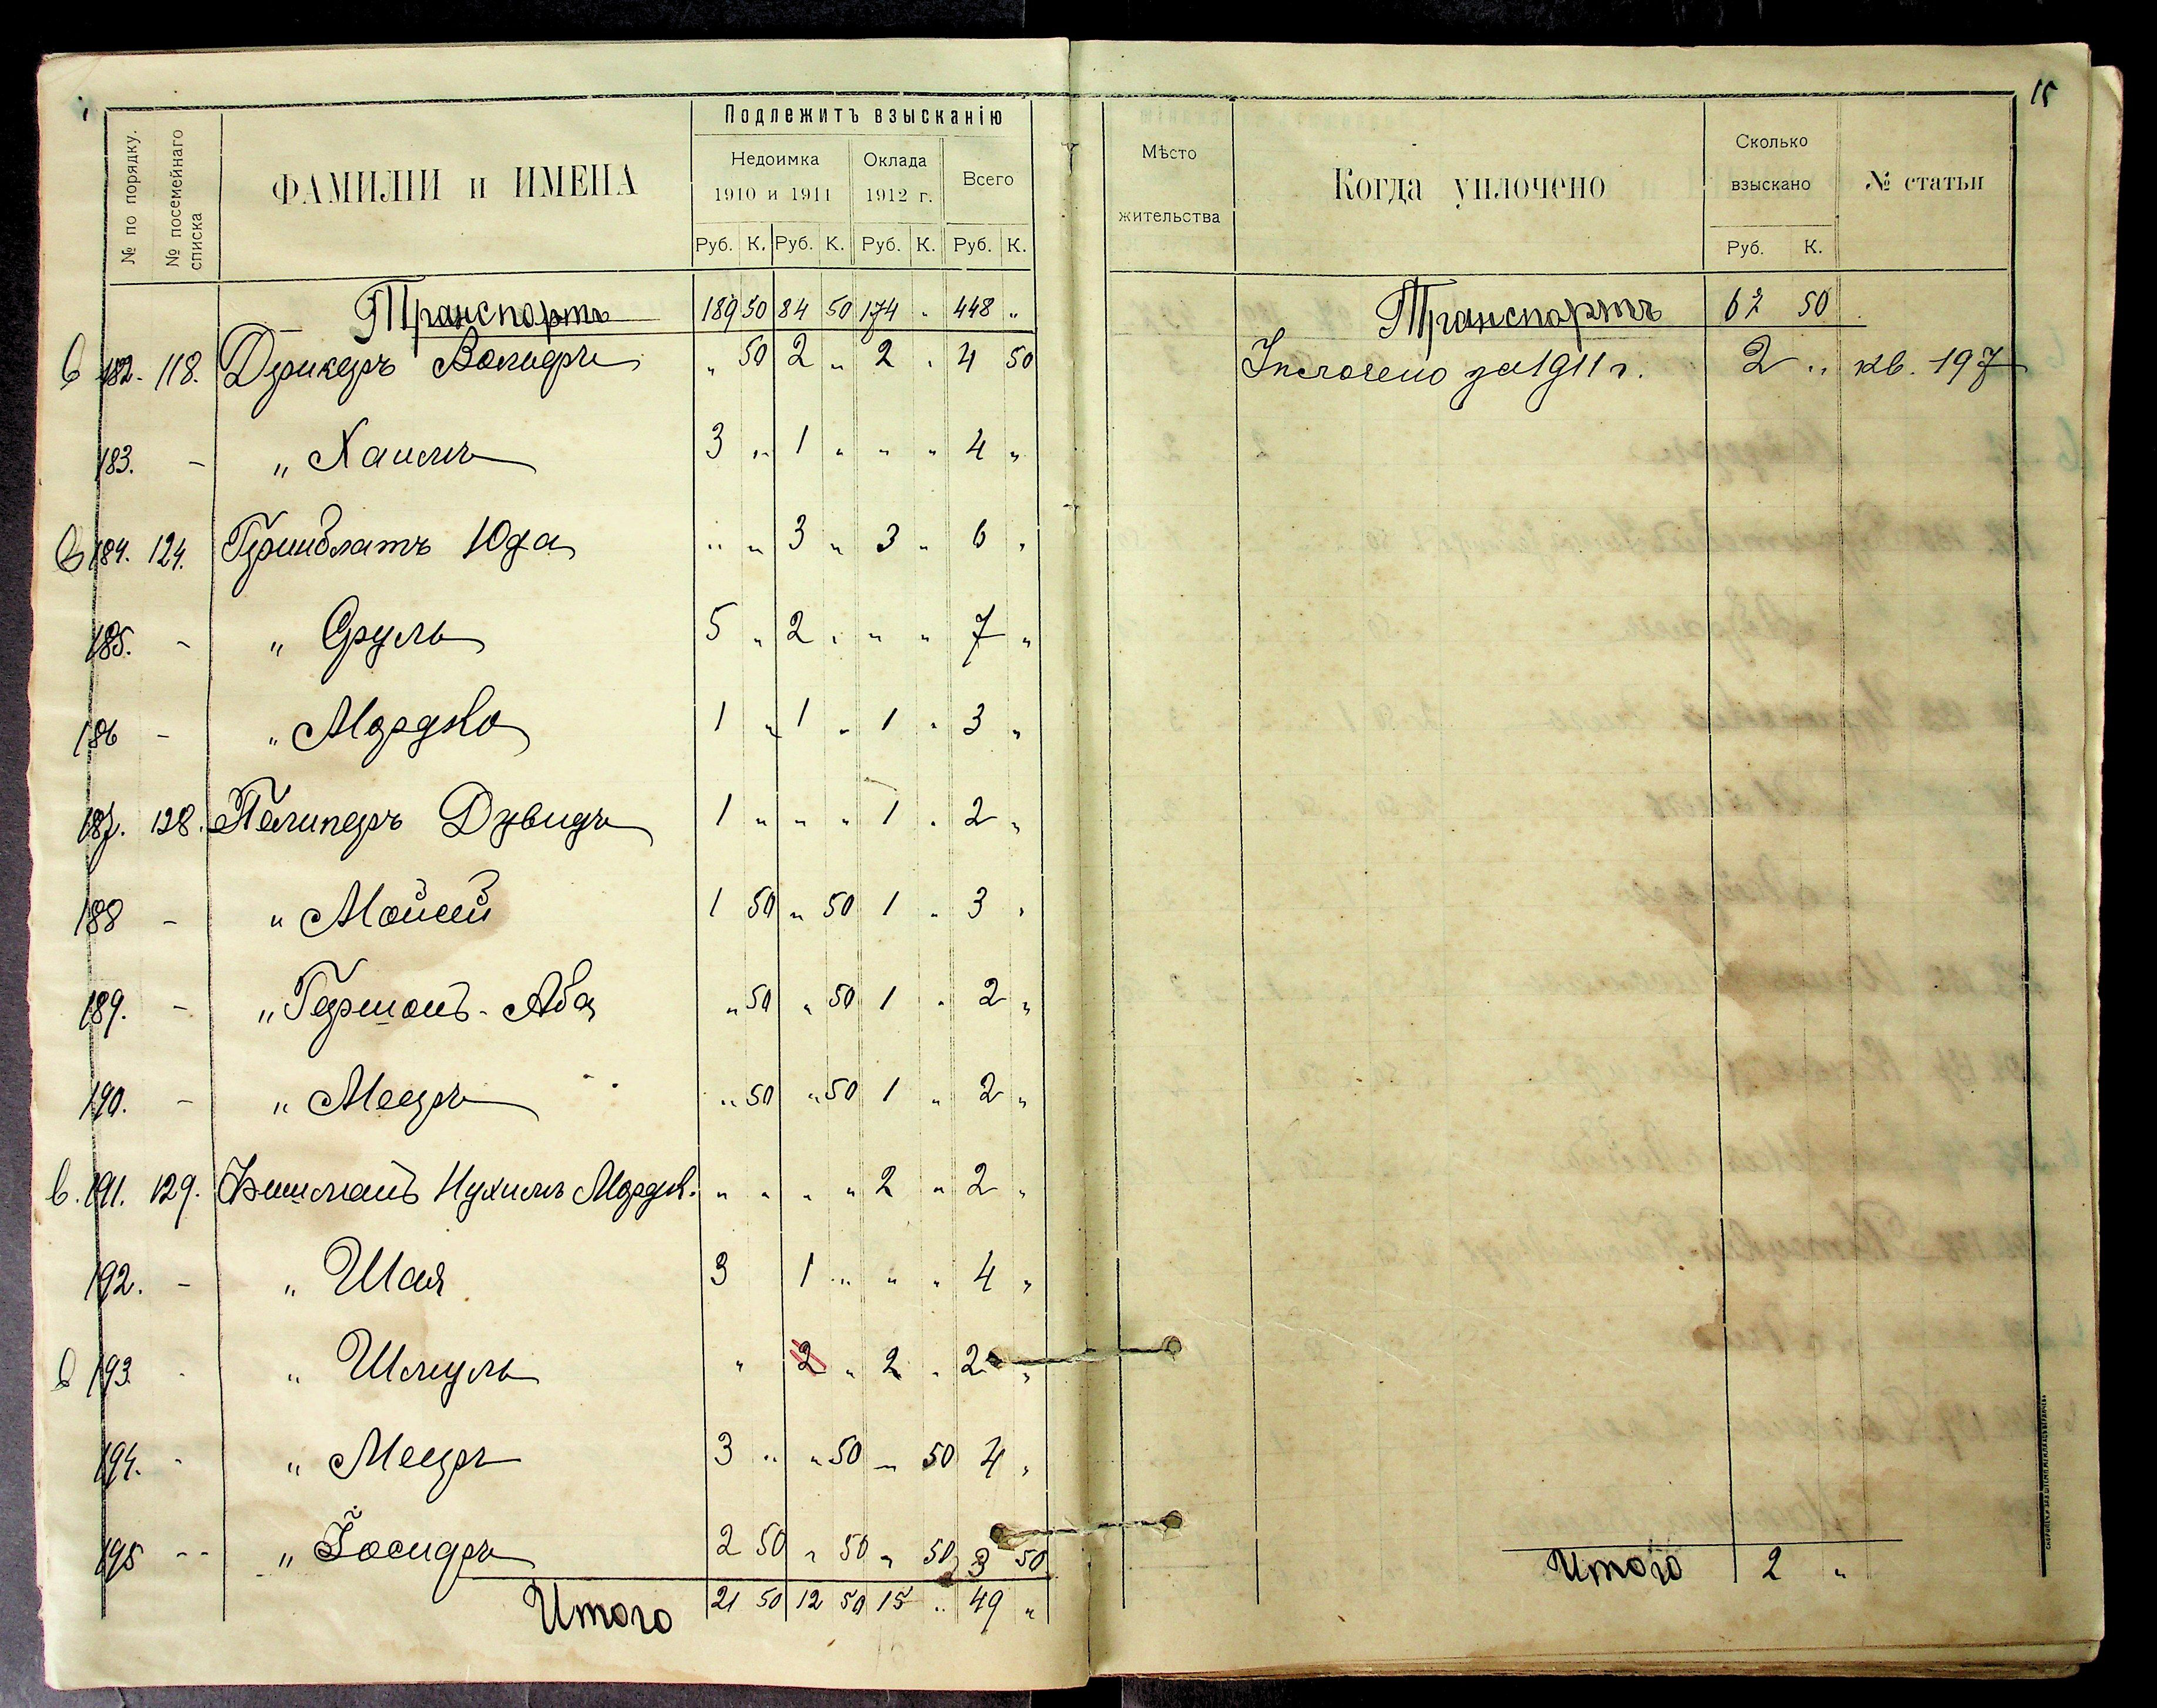 15
№ по порядку.
№ посемейнаго списка
ФАМИЛІИ и ИМЕНА
Подлежитъ взысканію
Недоимка
1910 и 1911
Оклада
1912 г.
Всего
Руб. К. Руб. К. Руб. К. Руб. К.
Мѣсто
жительства
Когда уплочено
Сколько
взыскано
Руб. К.
№ статьи
Транспортъ 189 50 84 50 174 " 448 "
Транспортъ 62 50
в 182. 118. Друкеръ Вольфъ " 50 2 " 2 " 4 50
Уплочено за 1911 г. 2 " кв. 197
183. - " Хаимъ 3 " 1 " " " 4 "
в 184. 124. Гринблатъ Юда " " 3 " 3 " 6 "
185. - " Сруль 5 " 2 " " " 7 "
186 - " Мордко 1 " 1 " 1 " 3 "
187. 128. Гелиперъ Дувидъ 1 " " " 1 " 2 "
188 - " Мойсей 1 50 " 50 1 " 3 "
189. - " Гершонъ-Аба " 50 " 50 1 " 2 "
190. - " Мееръ " 50 " 50 1 " 2 "
в. 191. 129. Фишманъ Нухимъ Мордк. " " " " 2 " 2 "
192. - " Шая 3 1 " " " 4 "
в 193. - " Шмуль " 2 " 2 " 2 "
194. - " Мееръ 3 " " 50 " 50 4 "
195 -- " Іосифъ 2 50 " 50 " 50 3 50
Итого 21 50 12 50 15 " 49 "
Итого 2 "